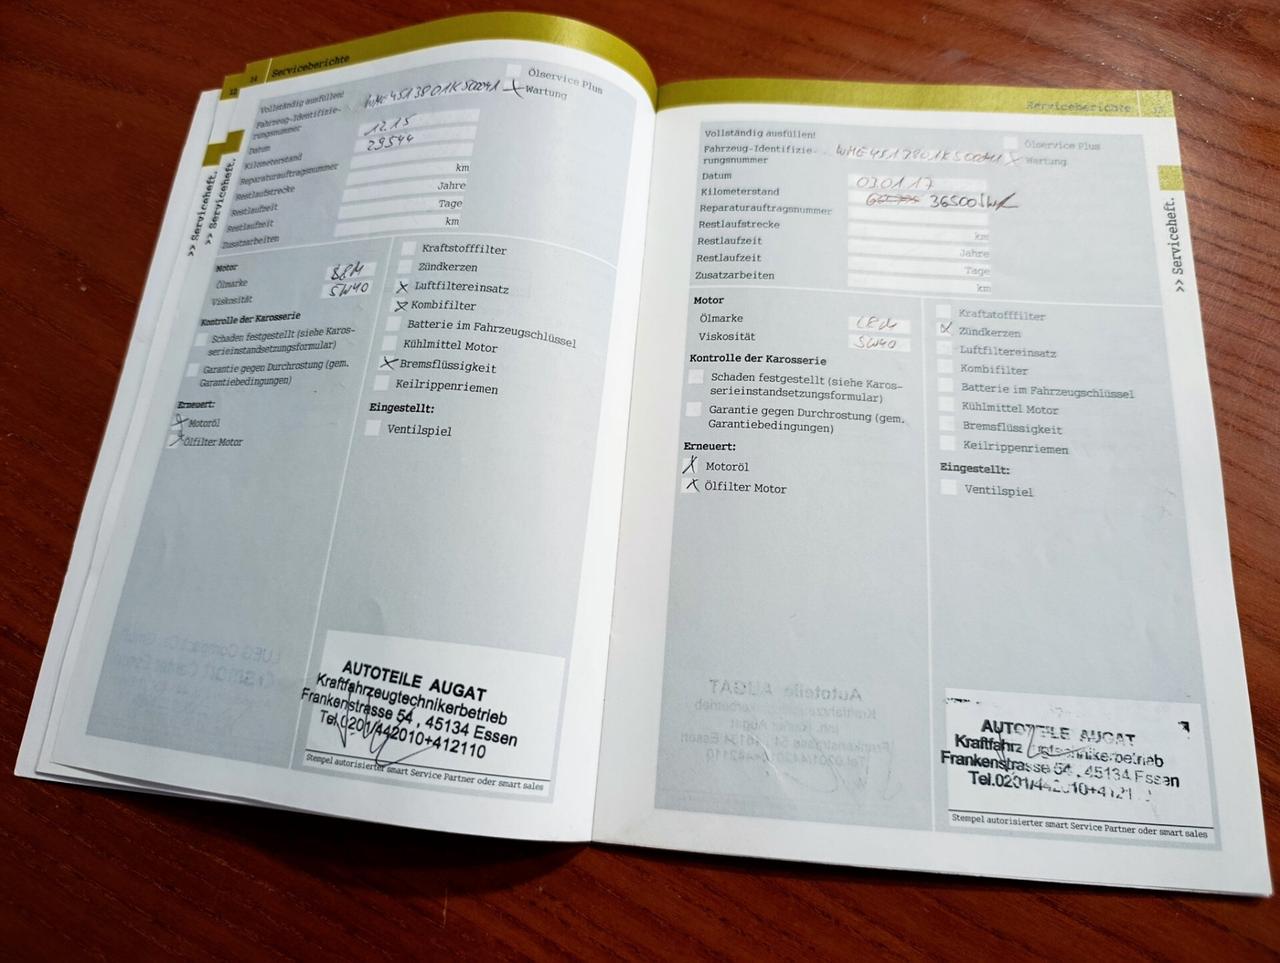 12
14 Serviceberichte
>> Serviceheft.
>> Serviceheft.
Vollständig ausfüllen!
Fahrzeug-Identifizie-
rungsnummer
Datum 12.15
Kilometerstand 29544
Reparaturauftragsnummer
Restlaufstrecke km
Restlaufzeit Jahre
Restlaufzeit Tage
Zusatzarbeiten km
Ölservice Plus
X Wartung
Motor
Ölmarke
Viskosität 5W40
Kontrolle der Karosserie
Schaden festgestellt (siehe Karos-
serieinstandsetzungsformular)
Garantie gegen Durchrostung (gem.
Garantiebedingungen)
Erneuert:
X Motoröl
X Ölfilter Motor
Kraftstofffilter
Zündkerzen
X Luftfiltereinsatz
X Kombifilter
Batterie im Fahrzeugschlüssel
Kühlmittel Motor
X Bremsflüssigkeit
Keilrippenriemen
Eingestellt:
Ventilspiel
AUTOTEILE AUGAT
Kraftfahrzeugtechnikerbetrieb
Frankenstrasse 54 , 45134 Essen
Tel.0201/442010+412110
Stempel autorisierter smart Service Partner oder smart sales
Serviceberichte
>> Serviceheft.
Vollständig ausfüllen!
Fahrzeug-Identifizie-
rungsnummer
Datum 03.01.17
Kilometerstand 36500
Reparaturauftragsnummer
Restlaufstrecke km
Restlaufzeit Jahre
Restlaufzeit Tage
Zusatzarbeiten km
Ölservice Plus
X Wartung
Motor
Ölmarke
Viskosität 5W40
Kontrolle der Karosserie
Schaden festgestellt (siehe Karos-
serieinstandsetzungsformular)
Garantie gegen Durchrostung (gem.
Garantiebedingungen)
Erneuert:
X Motoröl
X Ölfilter Motor
Kraftstofffilter
X Zündkerzen
Luftfiltereinsatz
Kombifilter
Batterie im Fahrzeugschlüssel
Kühlmittel Motor
Bremsflüssigkeit
Keilrippenriemen
Eingestellt:
Ventilspiel
AUTOTEILE AUGAT
Kraftfahrzeugtechnikerbetrieb
Frankenstrasse 54 , 45134 Essen
Stempel autorisierter smart Service Partner oder smart sales